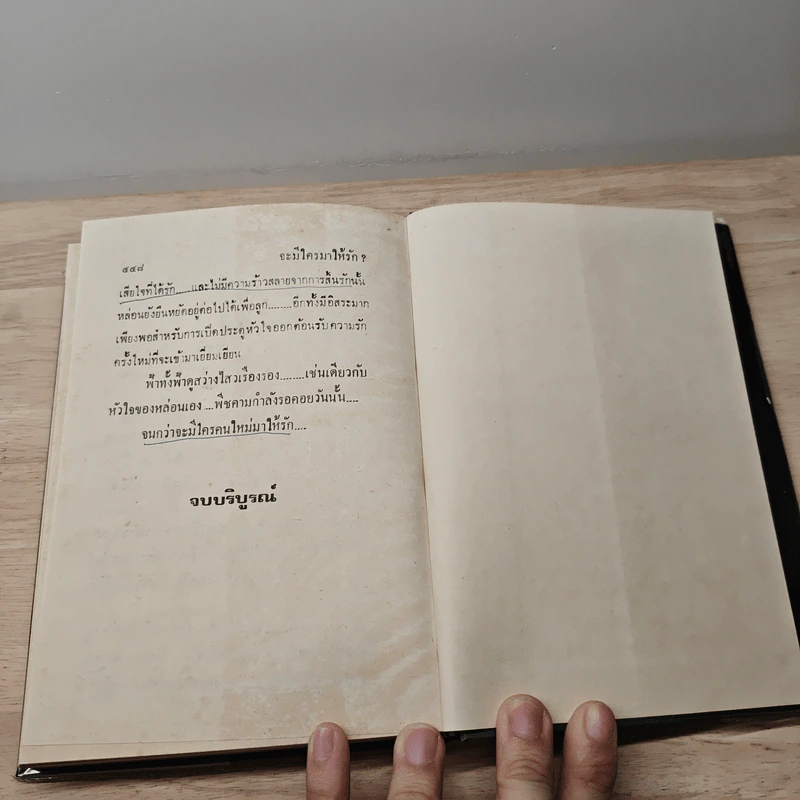 ๕๕๘
จะมีใครมาให้รัก ?
เสียใจที่ได้รัก.....และไม่มีความร้าวสลายจากการสิ้นรักนั้น
หล่อนยังยืนหยัดอยู่ต่อไปได้เพื่อลูก........อีกทั้งมีอิสระมาก
เพียงพอสำหรับการเปิดประตูหัวใจออกต้อนรับความรัก
ครั้งใหม่ที่จะเข้ามาเยี่ยมเยียน
ฟ้าทั้งฟ้าดูสว่างไสวเรืองรอง........เช่นเดียวกับ
หัวใจของหล่อนเอง ...พืชคามกำลังรอคอยวันนั้น....
จนกว่าจะมีใครคนใหม่มาให้รัก....
จบบริบูรณ์